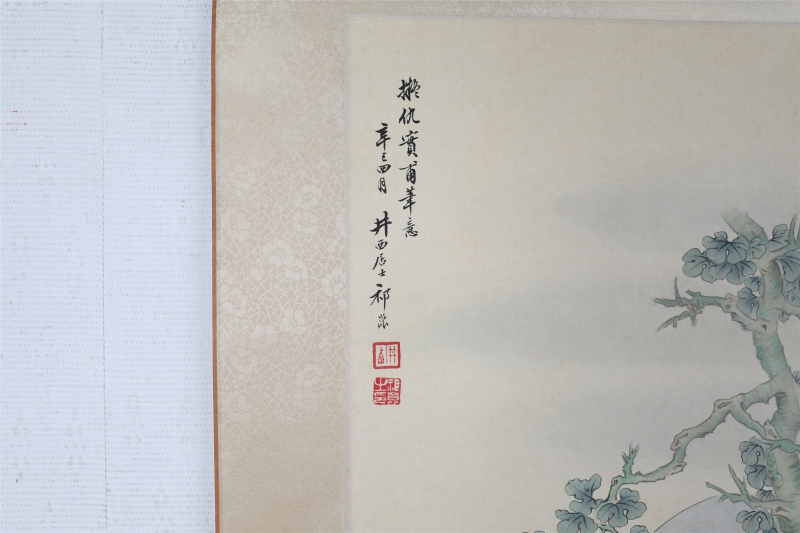 擬仇實甫筆意
辛巳四月 井西居士 祁崑
井西
祁崑之印